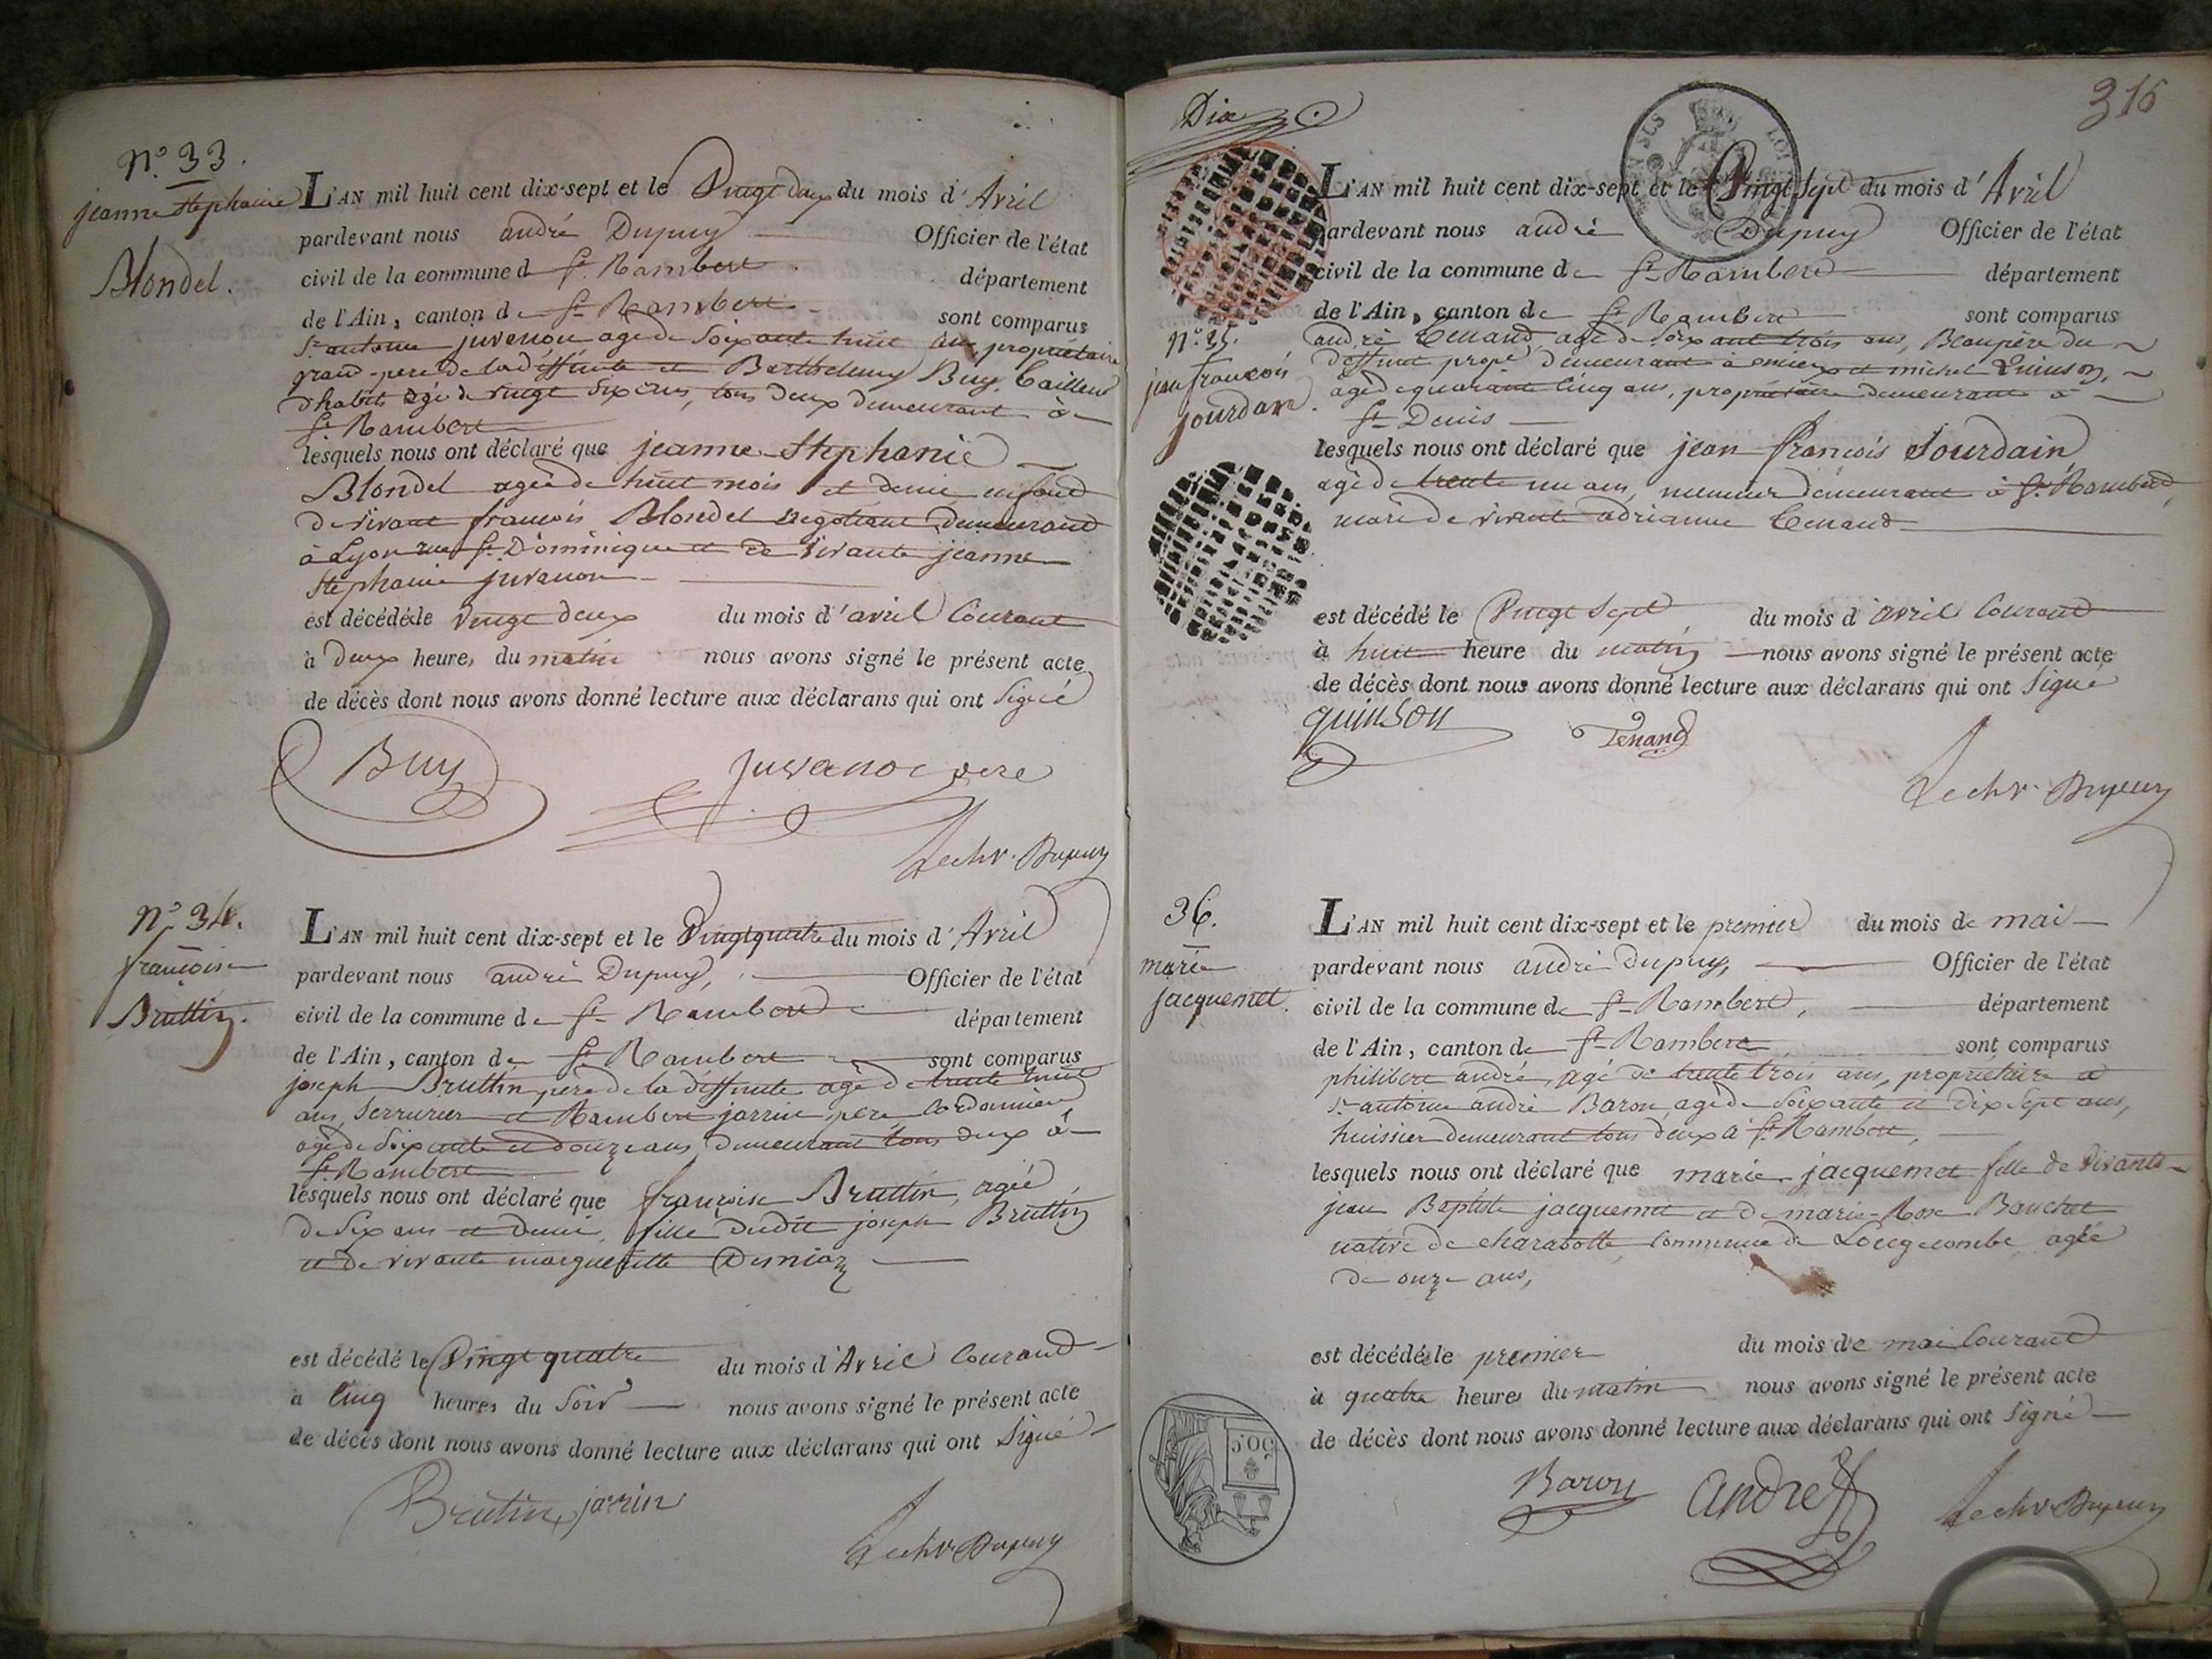 N.° 33.
jeanne Stephanie
Blondel.
L'AN mil huit cent dix-sept et le Vingt deux du mois d'Avril
pardevant nous andré Dupuy Officier de l'état
civil de la commune de St. Rambert département
de l'Ain, canton de St. Rambert sont comparus
Sr. antoine juvanon agé de Soixante huit ans, propriétaire
grand-pere de la déffunte et Barthelemy Buy, tailleur
d'habits agé de vingt Six ans, tous deux demeurant à
St. Rambert
lesquels nous ont déclaré que jeanne Stephanie
Blondel agée de huit mois et demie enfant
de vivant françois Blondel negotiant demeurant
à Lyon rue St. Dominique et de vivante jeanne
Stephanie juvanon
est décédée le vingt deux du mois d'avril Courant
à deux heures du matin nous avons signé le présent acte
de décès dont nous avons donné lecture aux déclarans qui ont Signé
Buy Juvanon pere
Dupuy
N.° 34.
françoise
Bruttin.
L'AN mil huit cent dix-sept et le Vingt quatre du mois d'Avril
pardevant nous andré Dupuy, Officier de l'état
civil de la commune de St. Rambert département
de l'Ain, canton de St. Rambert sont comparus
joseph Bruttin, pere de la déffunte agé de trente huit
ans, Serrurier et Rambert jarrin, pere Cordonnier
agé de Soixante et douze ans, demeurant tous deux à
St. Rambert
lesquels nous ont déclaré que françoise Bruttin, agée
de Six ans et demi, fille dudit joseph Bruttin
et de vivante margueritte Derniaz
est décédé le Vingt quatre du mois d'Avril Courant
à Cinq heures du Soir nous avons signé le présent acte
de décès dont nous avons donné lecture aux déclarans qui ont Signé
Brutin jarrin
Dupuy
Dix
316
N.° 35.
jean françois
jourdain.
L'AN mil huit cent dix-sept et le Vingt Sept du mois d'Avril
pardevant nous andré Dupuy Officier de l'état
civil de la commune de St. Rambert département
de l'Ain, canton de St. Rambert sont comparus
andré Tenand, agé de Soixante trois ans, Beaupère du
déffunt propre demeurant à et michel Quinson,
agé de quarante Cinq ans, propriétaire demeurant à
St. Denis
lesquels nous ont déclaré que jean françois Jourdain
agé de trente un ans, meunier demeurant à St. Rambert,
mari de vivante adrianne Tenand
est décédé le Vingt Sept du mois d'avril Courant
à huit heure du matin nous avons signé le présent acte
de décès dont nous avons donné lecture aux déclarans qui ont Signé
quinson Tenand
Dupuy
36.
marie
jacquemet.
L'AN mil huit cent dix-sept et le premier du mois de mai
pardevant nous andré dupuy, Officier de l'état
civil de la commune de St. Rambert, département
de l'Ain, canton de St. Rambert sont comparus
philibert andré, agé de trente trois ans, propriétaire et
Sr. antoine andré Baron, agé de Soixante et dix Sept ans,
huissier demeurant tous deux à St. Rambert,
lesquels nous ont déclaré que marie jacquemet fille de vivants
jean Baptiste jacquemet et de marie-Rose Bauchet
native de charabotte, Commune de Longecombe agée
de onze ans,
est décédée le premier du mois de mai Courant
à quatre heures du matin nous avons signé le présent acte
de décès dont nous avons donné lecture aux déclarans qui ont Signé
Baron andré
Dupuy
50.c